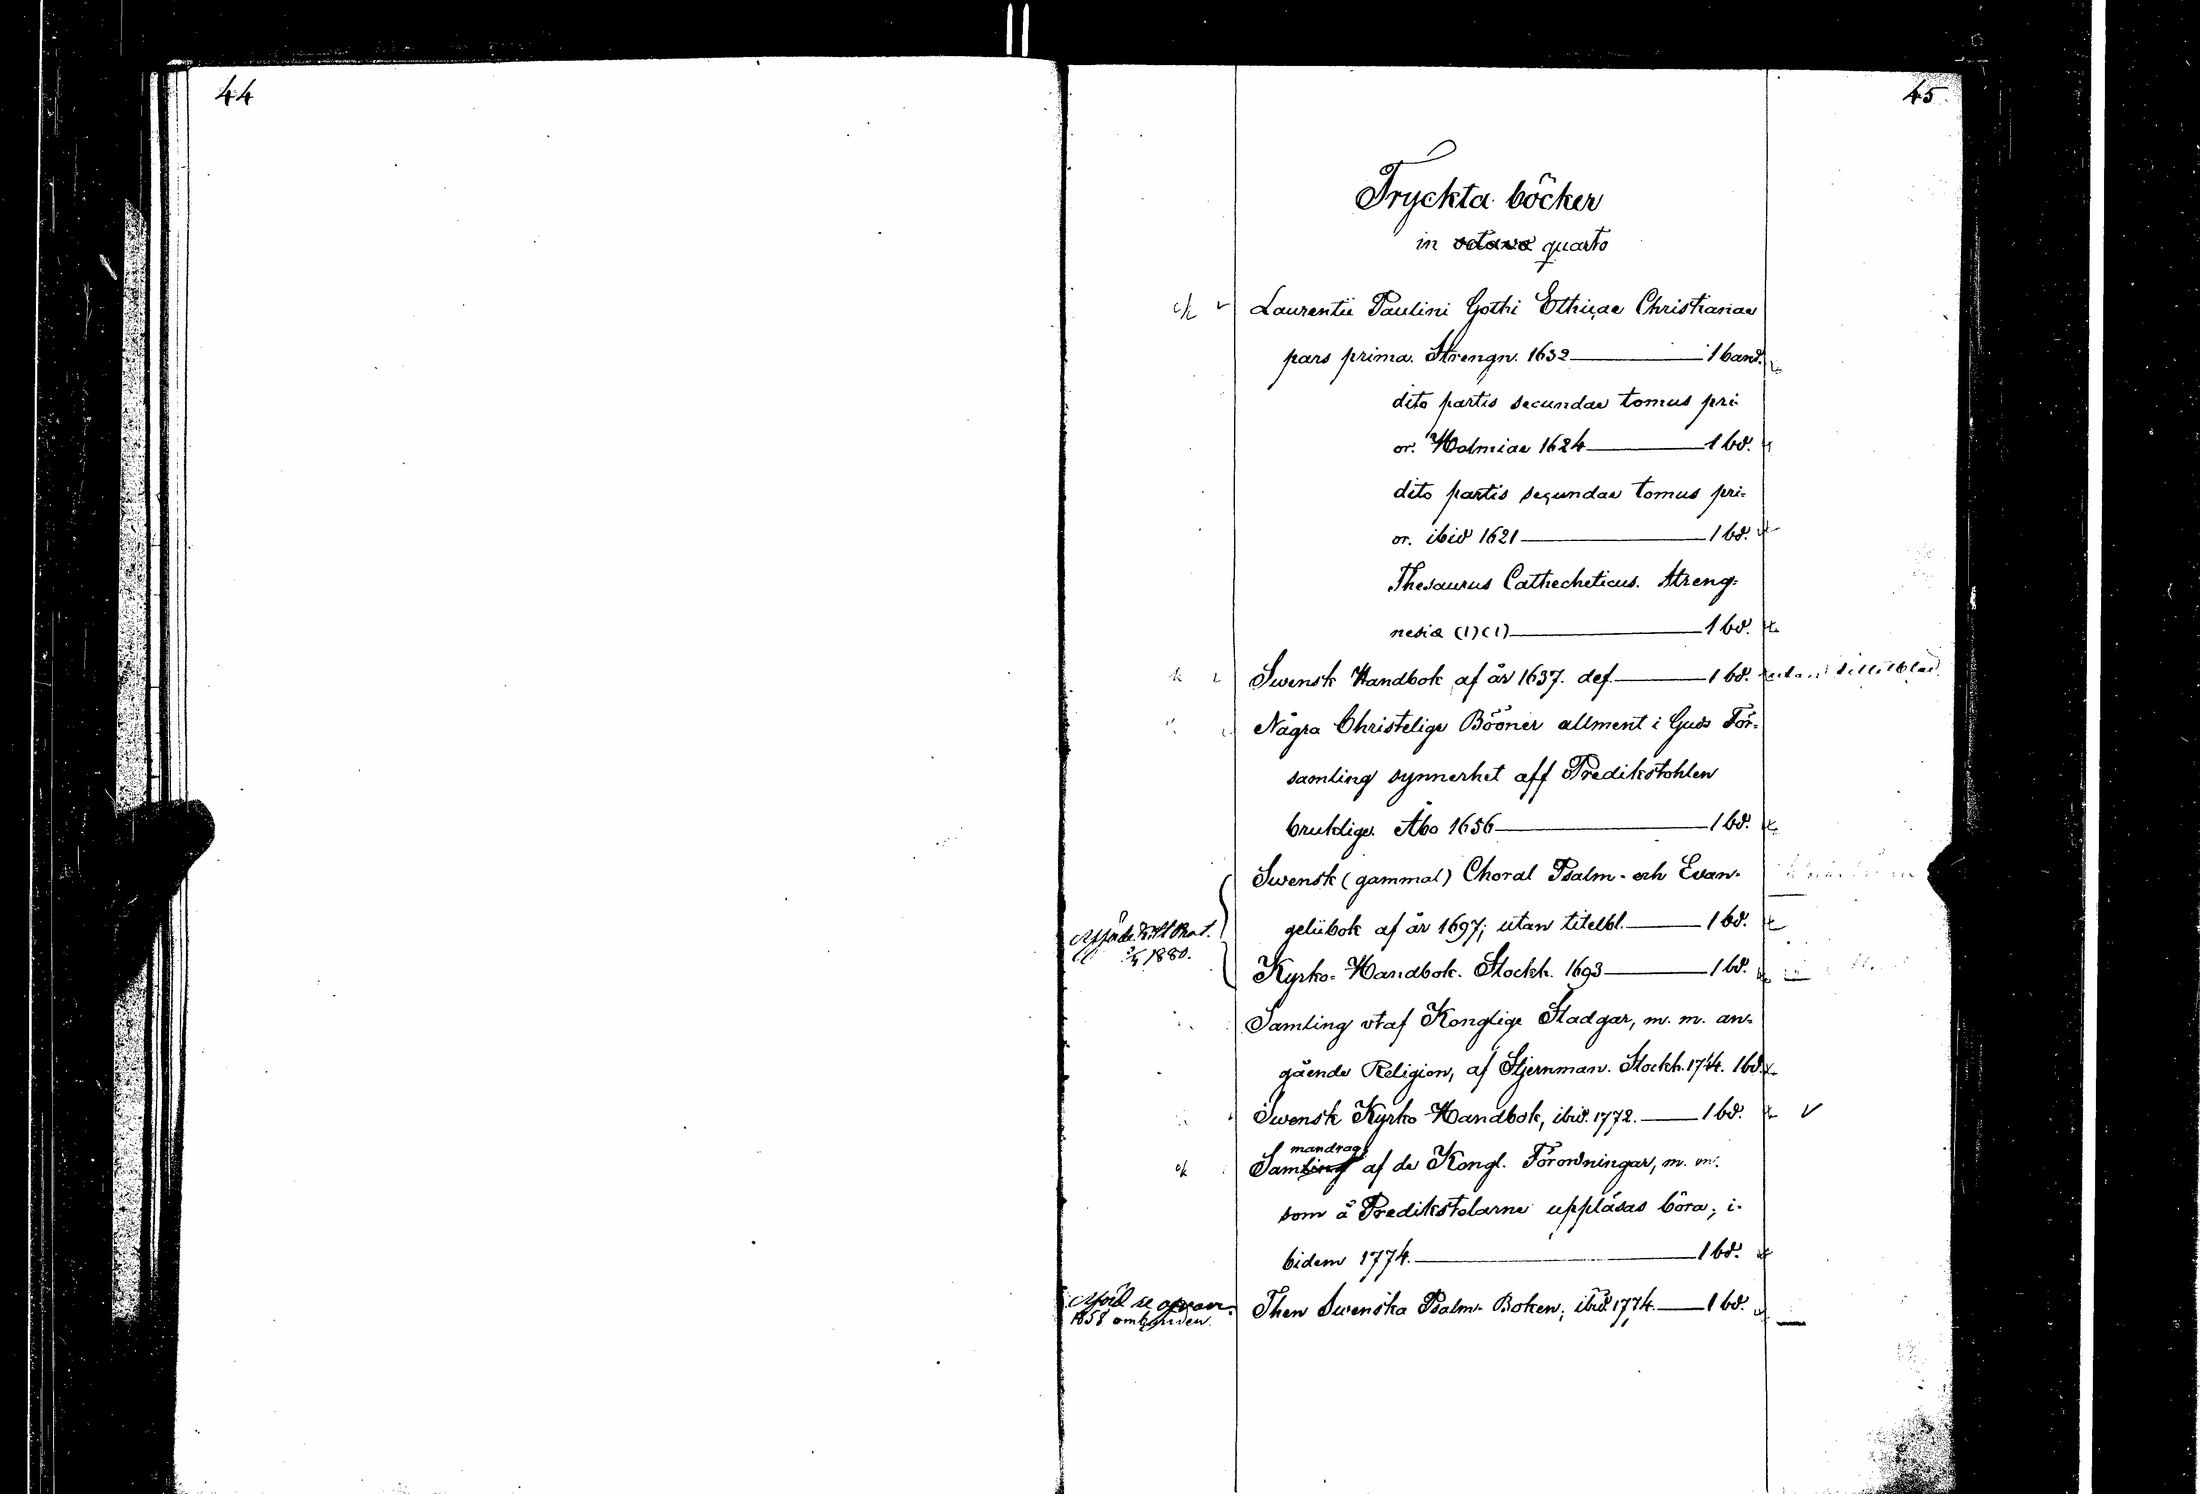 44
45
Tryckta böcker
in octavo quarto
Laurentii Paulini Gothi Ethicae Christianae
pars prima. Strengn. 1632 — 1 band.
dito partis secundae tomus pri-
or. Holmiae 1624 — 1 bd.
dito partis secundae tomus pri-
or. ibid 1621 — 1 bd.
Thesaurus Cathecheticus. Streng-
nesiæ (1)(1) — 1 bd.
Swensk Handbok af år 1637. def. — 1 bd. utan titelblad.
Någre Christelige Bööner allment i Guds För-
samling synnerhet aff Predikstohlen
bruklige. Åbo 1656 — 1 bd.
Swensk (gammal) Choral Psalm- och Evan-
geliibok af år 1697; utan titelbl. — 1 bd.
1880.
Kyrko-Handbok. Stockh. 1693 — 1 bd.
Samling utaf Konglige Stadgar, m. m. an-
gående Religion, af Stjernman. Stockh. 1744. 1 bd.
Swensk Kyrko-Handbok, ibid. 1772. — 1 bd. ✓
mandrag
Samling af de Kongl. Förordningar, m. m.
som å Predikstolarne uppläsas böra; i-
bidem 1774. — 1 bd.
Then Swenska Psalm-Boken; ibid. 1774. — 1 bd.
1858 ombunden.